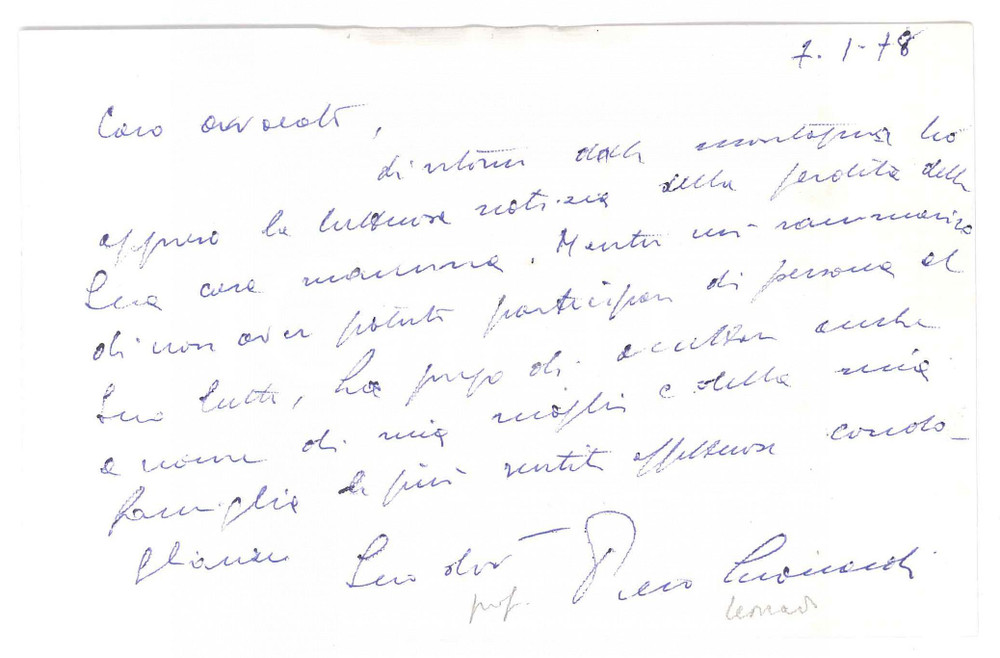 7. 1-78
Caro avvocato,
di ritorno dalla montagna ho
appreso la luttuosa notizia della perdita della
Sua cara mamma. Mentre mi rammarico
di non aver potuto partecipare di persona al
Suo lutto, La prego di accettare anche
a nome di mia moglie e della mia
famiglia le più sentite affettuose condo-
glianze
Suo dev.mo Piero Leonardi
prof. Leonardi